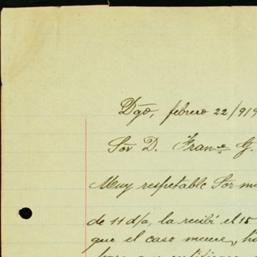 Dgo, febrero 22/919
Sor D. Franco G.
Muy respetable Sor m
de 11 d/a, la recibí el 15
que el caso mueve,